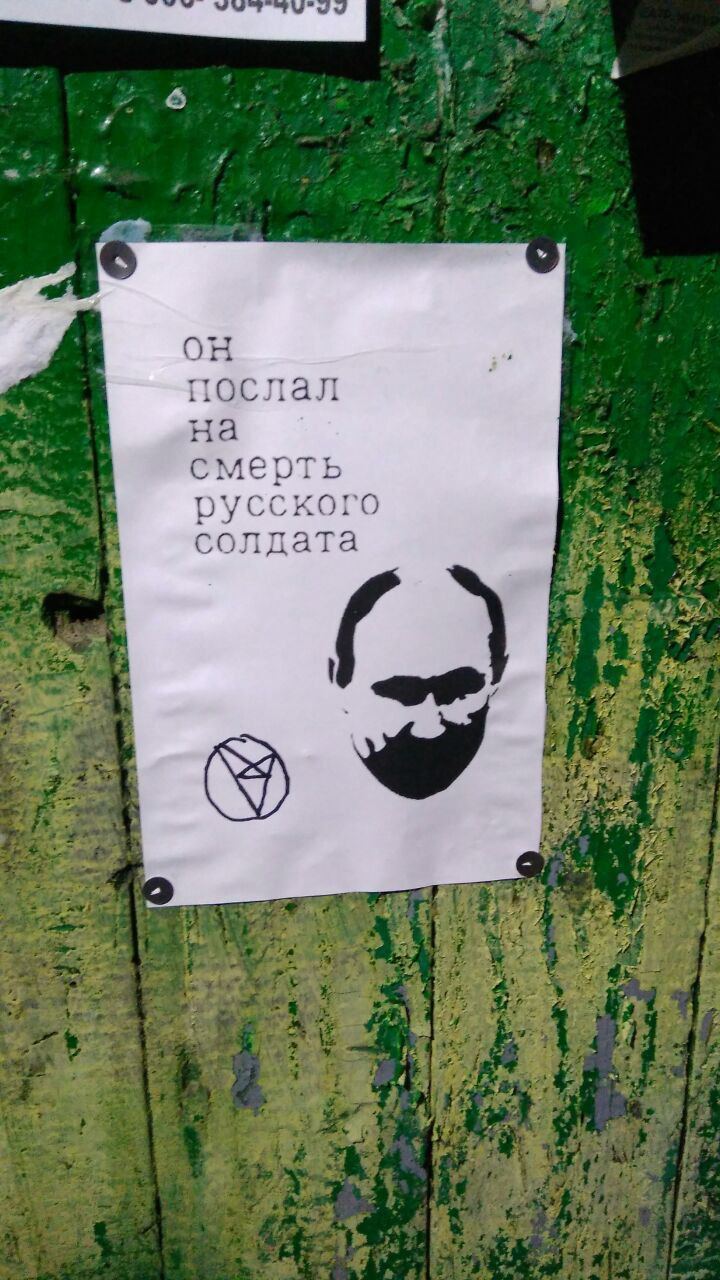 он
послал
на
смерть
русского
солдата